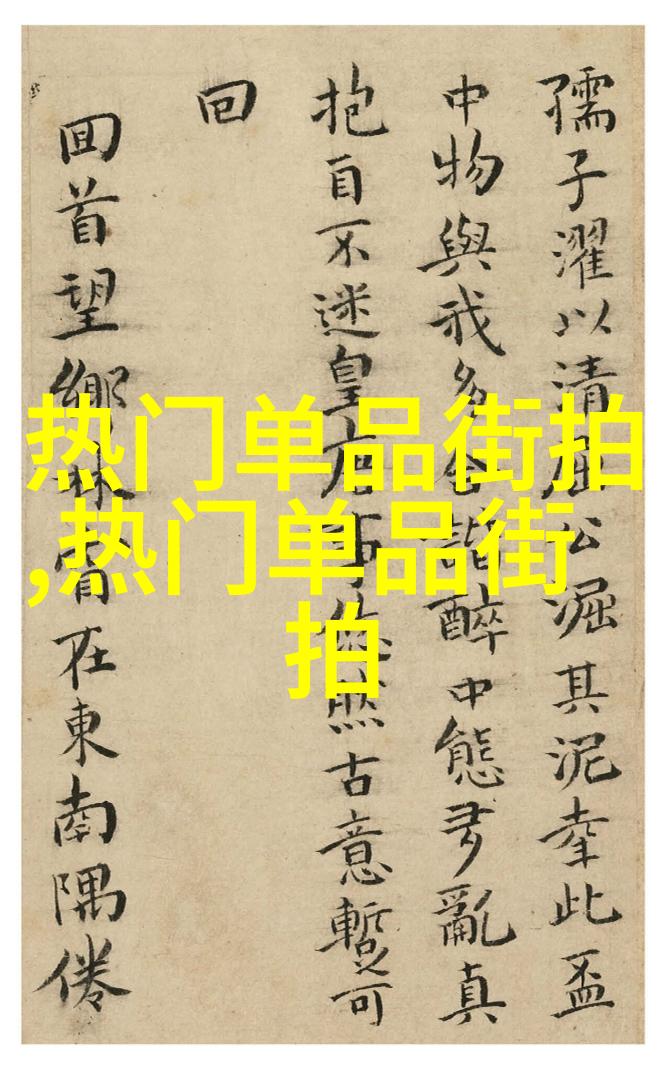 孺子濯以清屈公淈其泥幸此盃
中物與我多合諧醉中態亂真
抱自不迷皇唐然古意暫可
回
回首望鄉林在東南隅倦
热门单品街拍
,热门单品街
拍